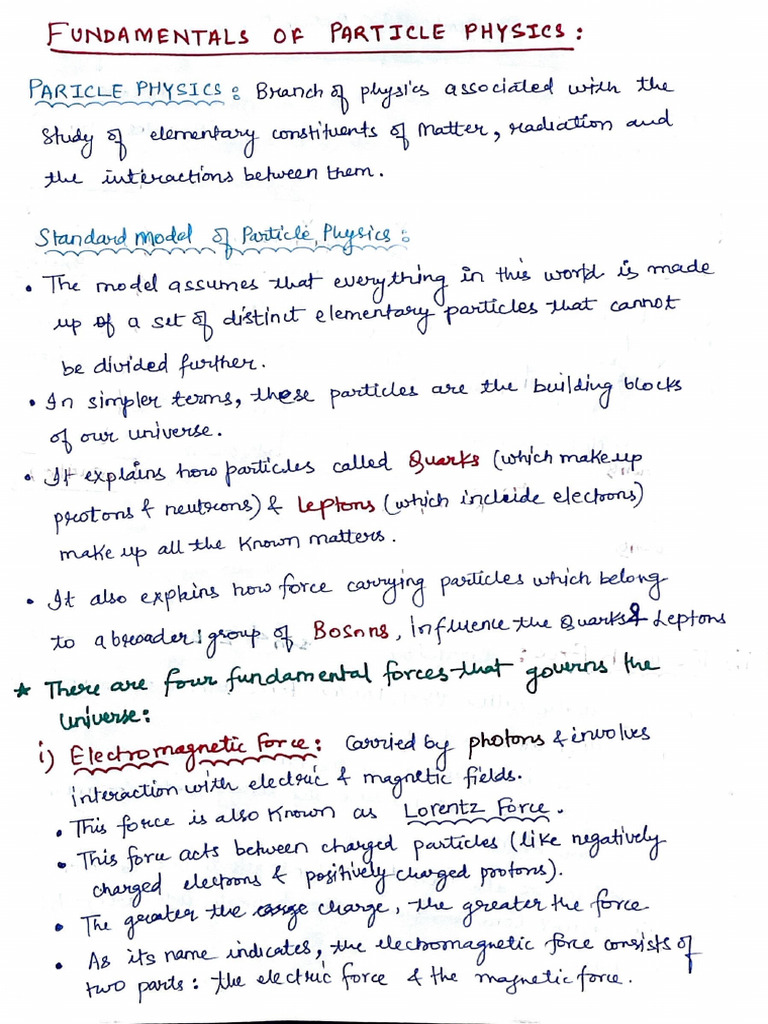 FUNDAMENTALS OF PARTICLE PHYSICS :
PARICLE PHYSICS : Branch of physics associated with the
study of elementary constituents of matter, radiation and
the interactions between them.
Standard model of Particle Physics :
• The model assumes that everything in this world is made
up of a set of distinct elementary particles that cannot
be divided further.
• In simpler terms, these particles are the building blocks
of our universe.
• It explains how particles called Quarks (which make up
protons & neutrons) & Leptons (which include electrons)
make up all the known matters.
• It also explains how force carrying particles which belong
to a broader group of Bosons, influence the Quarks & Leptons
* There are four fundamental forces that governs the
universe:
i) Electromagnetic Force : Carried by photons & involves
interaction with electric & magnetic fields.
• This force is also known as Lorentz Force.
• This force acts between charged particles (like negatively
charged electrons & positively charged protons).
• The greater the charge, the greater the force
• As its name indicates, the electromagnetic force consists of
two parts: the electric force & the magnetic force.